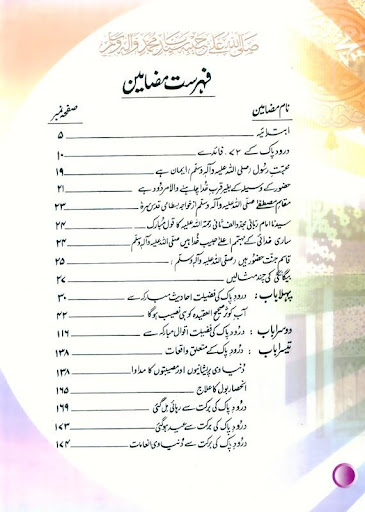 صلی اللہ علی حبیبہ سیدنا محمد وآلہ وسلم
فہرست مضامین
نام مضامین صفحہ نمبر
ابتدائیہ ۵
درود پاک کے ۷۲ فائدے ۱۰
محبتِ رسول (صلی اللہ علیہ وآلہ وسلم) ایمان ہے ۱۹
حضور کے وسیلہ کے بغیر قربِ خدا چاہنے والا مردود ہے ۲۱
مقام مصطفٰے صلی اللہ علیہ وآلہ وسلم از خواجہ بسطامی قدس سرہٗ ۲۳
سیدنا امام ربانی مجدد الف ثانی رحمۃ اللہ علیہ کا قول مبارک ۲۴
ساری خدائی کے مہتمم اعلٰے حبیبِ خدا ہیں صلی اللہ علیہ وآلہ وسلم ۲۴
قاسمِ جنت حضور ہیں (صلی اللہ علیہ وآلہ وسلم) ۲۵
بیگانگی کی چند مثالیں ۲۷
پہلا باب : درود پاک کی فضیلت احادیث مبارکہ سے ۳۰
آب کوثر صحیح العقیدہ کو ہی نصیب ہوگا ۴۲
دوسرا باب : درُود پاک کی فضیلت اقوال مبارکہ سے ۱۱۶
تیسرا باب : درُود پاک کے متعلق واقعات ۱۳۸
دُنیاوی پریشانیوں اور مصیبتوں کا مداوا ۱۳۸
انحصارِ بول کا علاج ۱۶۵
درُود پاک کی برکت سے رہائی مل گئی ۱۶۹
درُود پاک کی برکت سے عید ہوگئی ۱۷۳
درُود پاک کی برکت سے دُنیاوی انعامات ۱۷۴